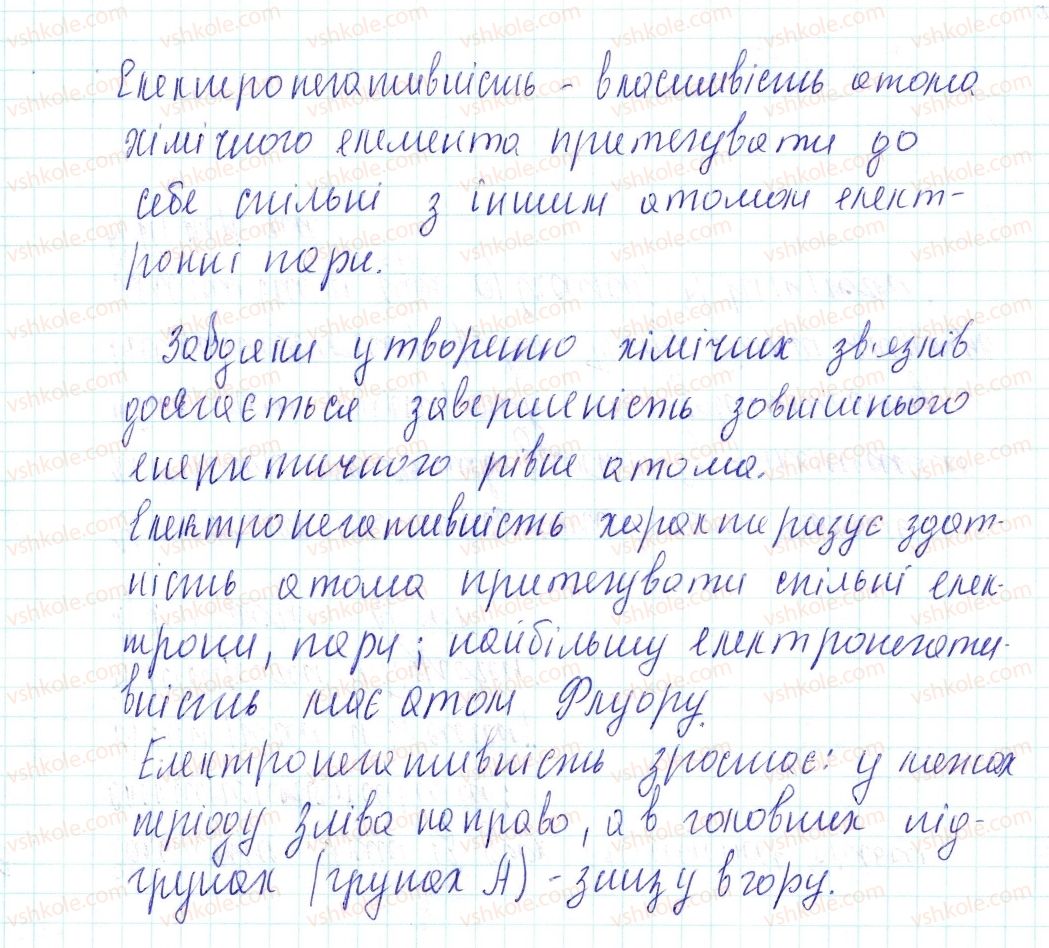 Електронегативність - властивість атома
хімічного елемента притягувати до
себе спільні з іншим атомом елект-
ронні пари.
Завдяки утворенню хімічних зв'язків
досягається завершеність зовнішнього
енергетичного рівня атома.
Електронегативність характеризує здат-
ність атома притягувати спільні елек-
трони, пари; найбільшу електронегати-
вність має атом Флуору.
Електронегативність зростає: у межах
періоду зліва направо, а в головних під-
групах (групах А) - знизу вгору.